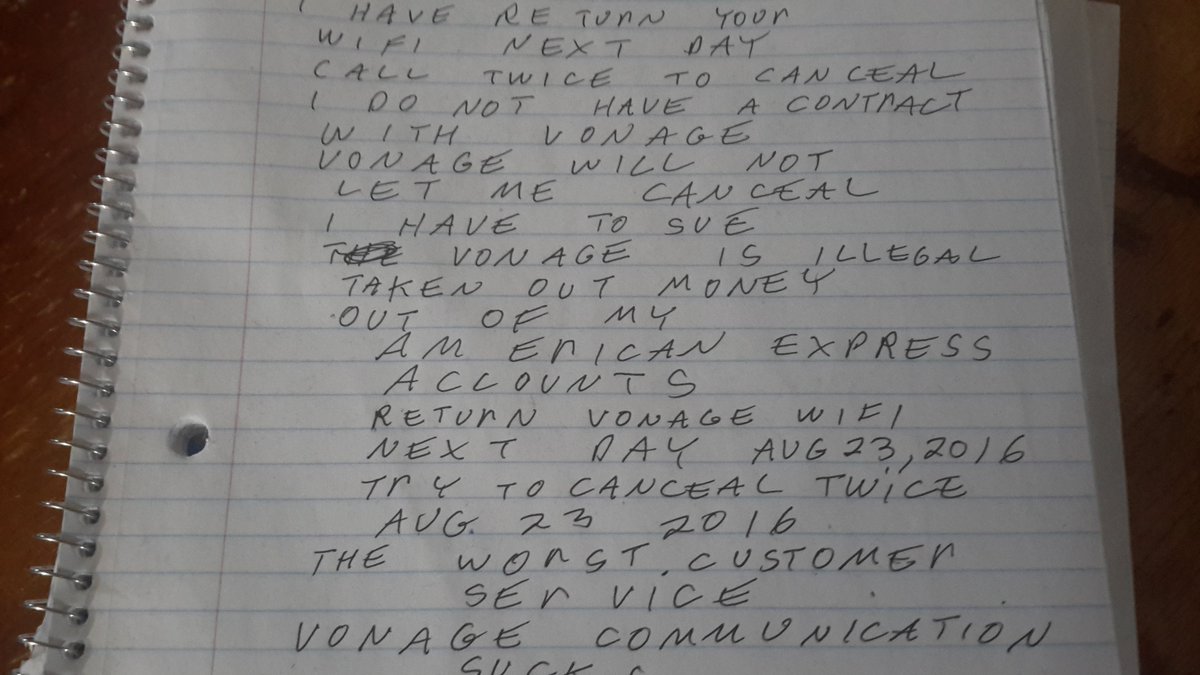 I HAVE RETURN YOUR
WIFI NEXT DAY
CALL TWICE TO CANCEAL
I DO NOT HAVE A CONTRACT
WITH VONAGE
VONAGE WILL NOT
LET ME CANCEAL
I HAVE TO SUE
VONAGE IS ILLEGAL
TAKEN OUT MONEY
OUT OF MY
AMERICAN EXPRESS
ACCOUNTS
RETURN VONAGE WIFI
NEXT DAY AUG 23, 2016
TRY TO CANCEAL TWICE
AUG. 23 2016
THE WORST CUSTOMER
SERVICE
VONAGE COMMUNICATION
SUCK